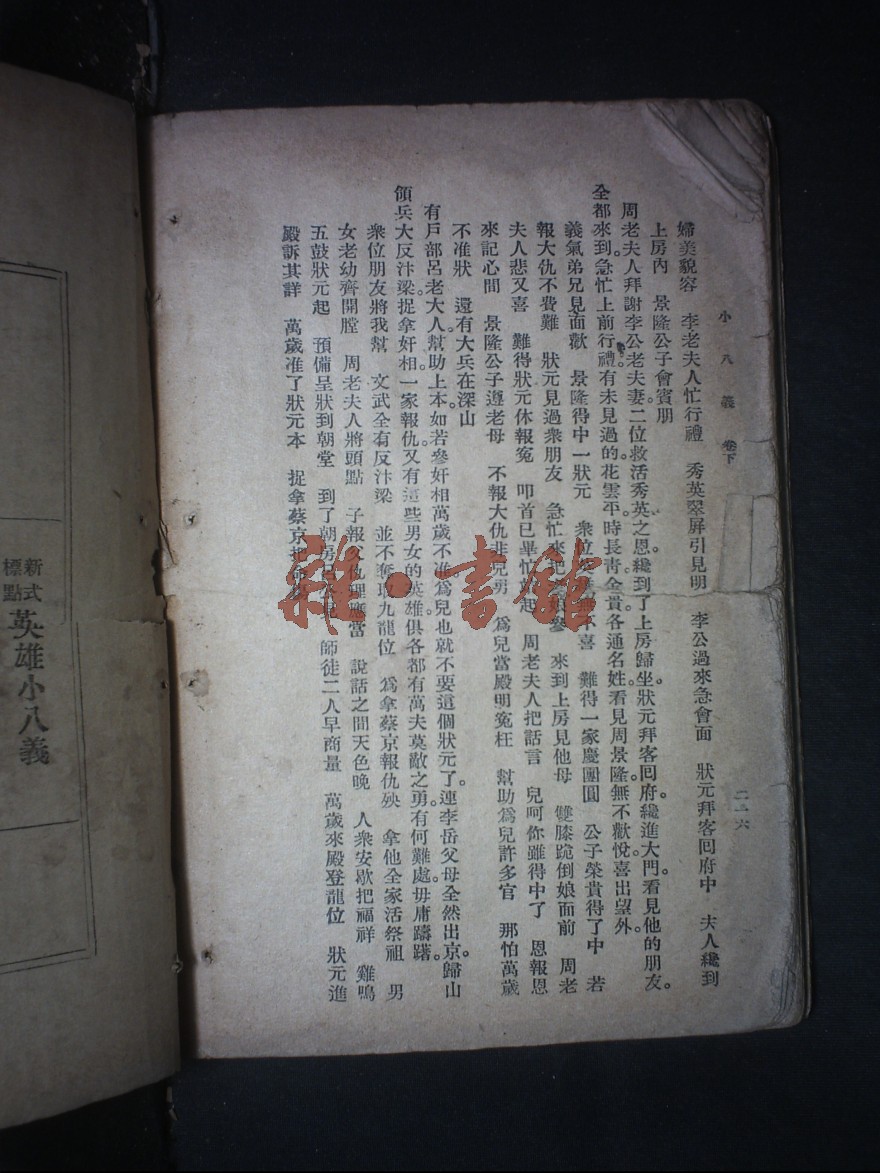 小八義 卷下 二一六
婦美貌容 李老夫人忙行禮 秀英翠屏引見明 李公過來急會面 狀元拜客回府中 夫人纔到
上房內 景隆公子會賓朋
周老夫人拜謝李公老夫妻二位救活秀英之恩。纔到了上房歸坐。狀元拜客回府。纔進大門。看見他的朋友。
全都來到。急忙上前行禮。有未見過的花雲平。時長青。金貴。各通名姓。看見周景隆。無不歡悅喜出望外。
義氣弟兄見面歡 景隆得中一狀元 衆位 無不喜 難得一家慶團圓 公子榮貴得了中 若
報大仇不費難 狀元見過衆朋友 急忙來把 娘參 來到上房見他母 雙膝跪倒娘面前 周老
夫人悲又喜 難得狀元休報冤 叩首已畢忙 起 周老夫人把話言 兒呵你雖得中了 恩報恩
來記心間 景隆公子遵老母 不報大仇非兒男 爲兒當殿明冤枉 幫助爲兒許多官 那怕萬歲
不准狀 還有大兵在深山
有戶部呂老大人。幫助上本。如若參奸相。萬歲不准。爲兒也就不要這個狀元了。連李岳父母全然出京。歸山
領兵大反汴梁。捉拿奸相一家報仇。又有這些男女的英雄。俱各都有萬夫莫敵之勇。有何難處。毋庸躊躇。
衆位朋友將我幫 文武全有反汴梁 並不奪取九龍位 爲拿蔡京報仇殃 拿他全家活祭祖 男
女老幼齊開膛 周老夫人將頭點 子報父仇理應當 說話之間天色晚 人衆安歇把福祥 雞鳴
五鼓狀元起 預備呈狀到朝堂 到了朝房 師徒二人早商量 萬歲來殿登龍位 狀元進
殿訴其詳 萬歲准了狀元本 捉拿蔡京把
新式
標點
英雄小八義
雜·書館